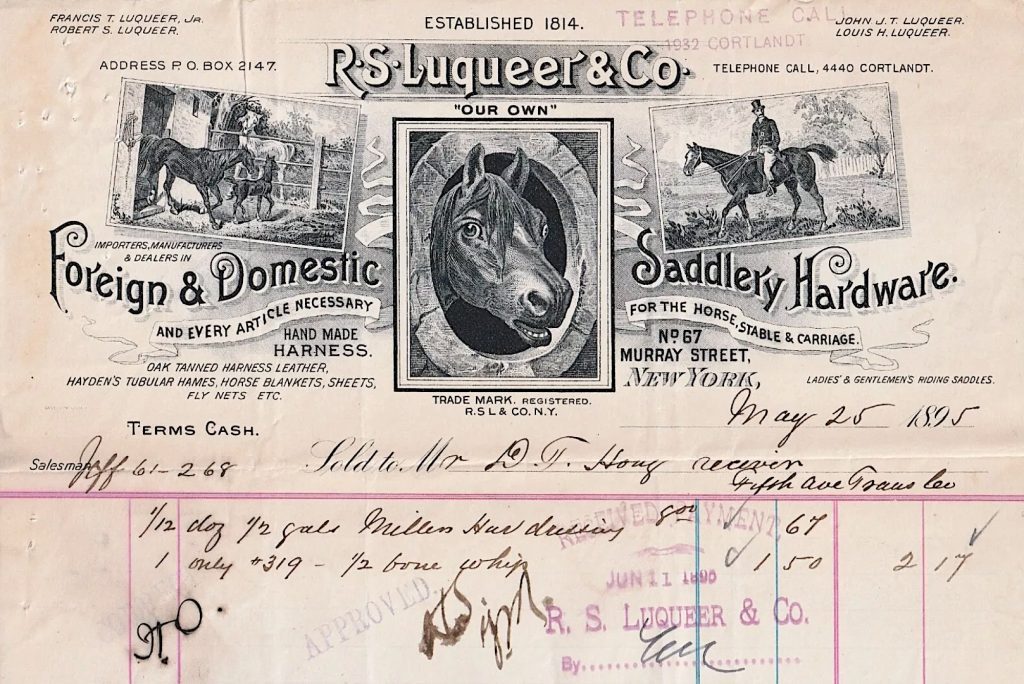 FRANCIS T. LUQUEER, JR.
ROBERT S. LUQUEER.
ESTABLISHED 1814.
TELEPHONE CALL
1932 CORTLANDT
JOHN J. T. LUQUEER.
LOUIS H. LUQUEER.
ADDRESS P. O. BOX 2147.
R·S·Luqueer & Co.
TELEPHONE CALL, 4440 CORTLANDT.
"OUR OWN"
IMPORTERS, MANUFACTURERS
& DEALERS IN
Foreign & Domestic
Saddlery Hardware.
AND EVERY ARTICLE NECESSARY
FOR THE HORSE, STABLE & CARRIAGE.
HAND MADE
HARNESS.
OAK TANNED HARNESS LEATHER,
HAYDEN'S TUBULAR HAMES, HORSE BLANKETS, SHEETS,
FLY NETS ETC.
No 67
MURRAY STREET,
NEW YORK,
LADIES' & GENTLEMEN'S RIDING SADDLES.
TRADE MARK. REGISTERED.
R.S L & CO. N.Y.
May 25 1895
TERMS CASH.
Salesman 61-268
Sold to Mr D T. Hoag receiver
Fifth Ave Trans Co
1/12 doz 1/2 gals Millers Har dressing 800 67
1 only #319 - 1/2 bone whip 1 50 2 17
RECEIVED PAYMENT
JUN 11 1895
R. S. LUQUEER & CO.
By
APPROVED